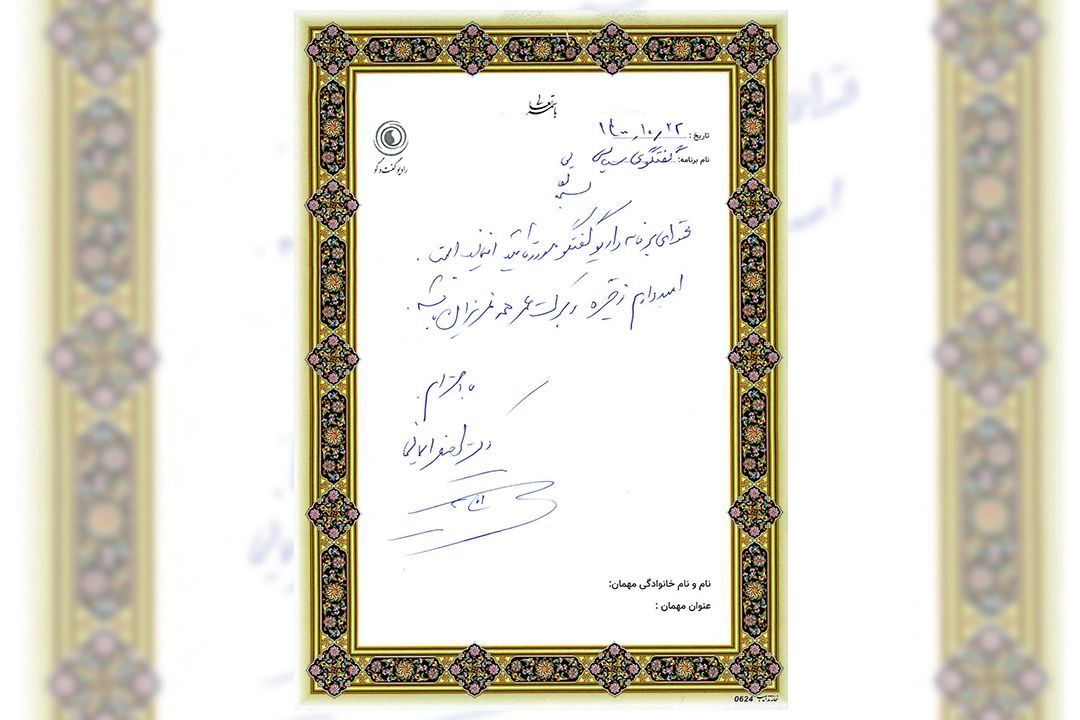 باسمه تعالی
رادیو گفت و گو
تاریخ : ۱۴۰۰٫۱۰٫۲۲
نام برنامه: گفتگوی سیاسی
محتوای برنامه رادیو گفتگو مورد تائید اینجانب است .
امیدوارم ذخیره و برکت عمر همه عزیزان باشد .
با احترام
نام و نام خانوادگی مهمان:
عنوان مهمان :
0624